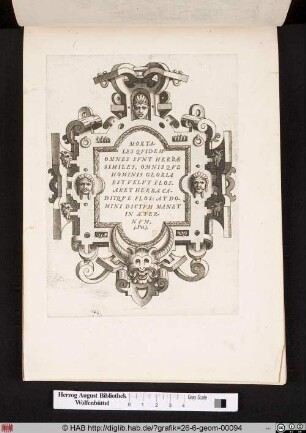 MORTA-
LES QVIDEM
OMNES SVNT HERBÆ
SIMILES, OMNISQVE
HOMINIS GLORIA
EST VELVT FLOS.
ARET HERBA CA-
DITQVE FLOS: AT DO-
MINI DICTVM MANET
IN ÆTER-
NVM.
Herzog August Bibliothek
Wolfenbüttel
0 1 2 3 4
Grey Scale
© HAB http://diglib.hab.de/?grafik=26-6-geom-00094